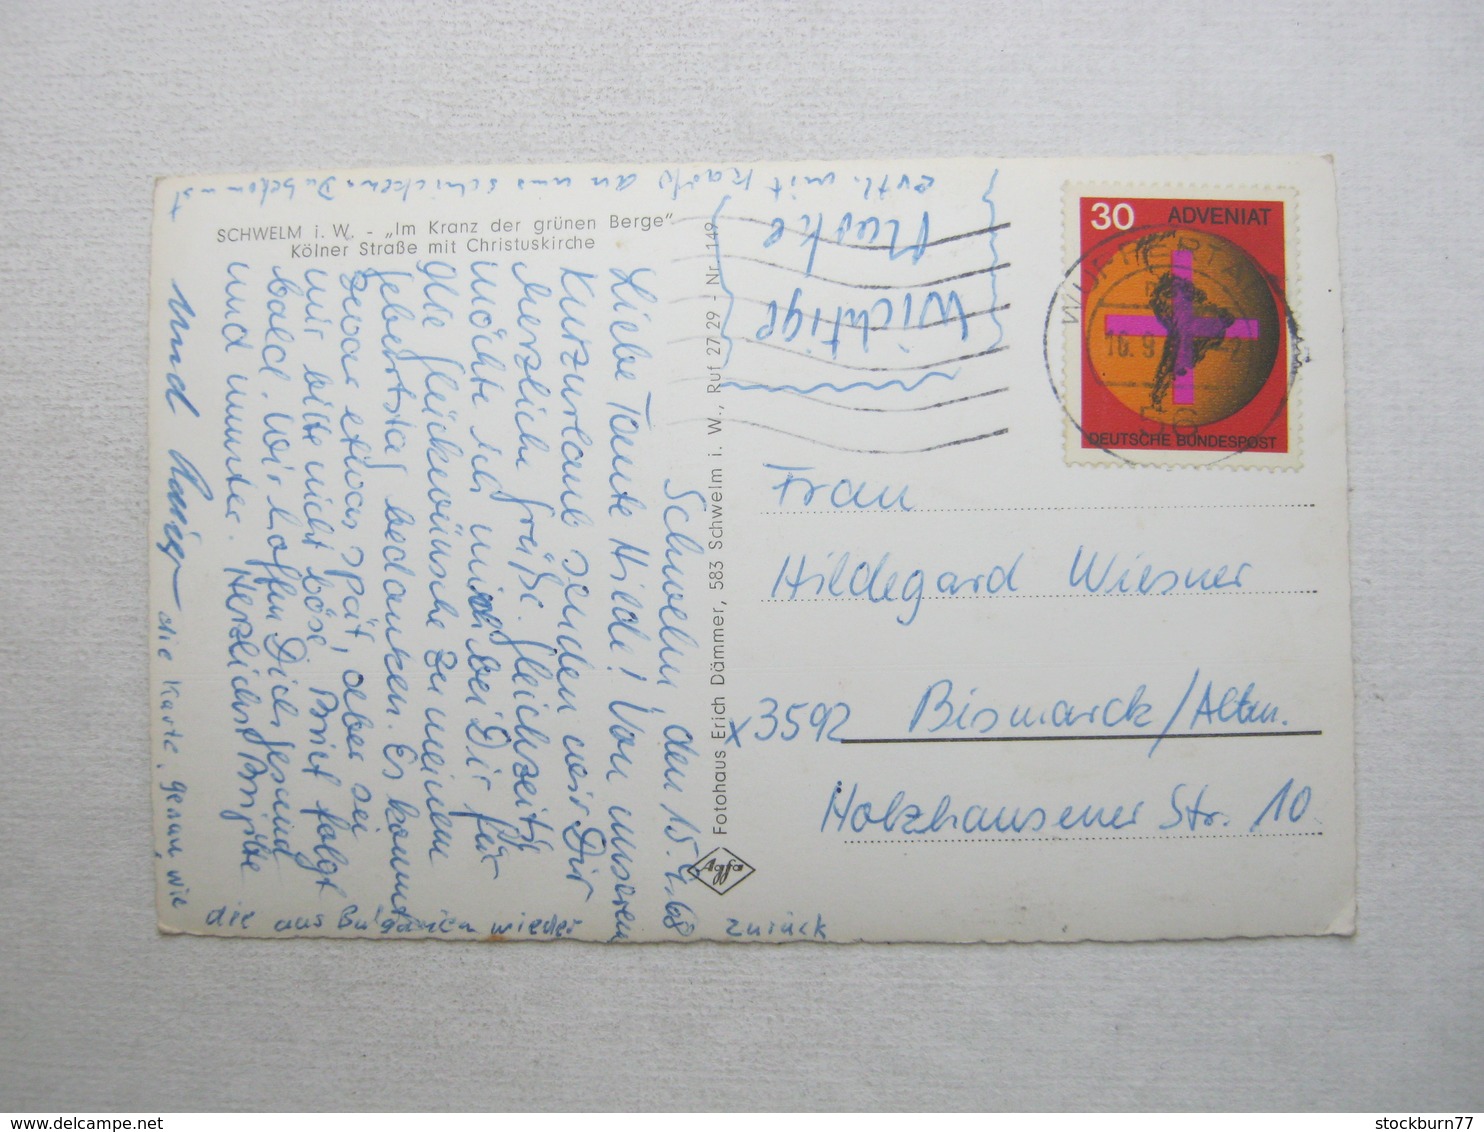 SCHWELM i. W. - „Im Kranz der grünen Berge"
Kölner Straße mit Christuskirche
Schwelm, den 15.9.68
Liebe Tante Hilde! Von unserem
Kurzurlaub senden wir Dir
herzliche Grüße. Gleichzeitig
möchte ich mich bei Dir für
die Glückwünsche zu meinem
Geburtstag bedanken. Es kommt
zwar etwas spät, aber sei
mir bitte nicht böse. Brief folgt
bald. Wir hoffen Dich gesund
und munter. Herzlichst Brigitte
und
die Karte, genau, wie
die aus Bulgarien wieder
zurück
evtl. mit Karte an uns schicken. Du bekommst
Wichtige
Marke
Fotohaus Erich Dämmer, 583 Schwelm i. W., Ruf 27 29 - Nr. 149
Agfa
30 ADVENIAT
DEUTSCHE BUNDESPOST
WUPPERTAL
16.9
56
Frau
Hildegard Wiesner
x3592 Bismarck/Altm.
Holzhausener Str. 10
stockburn77